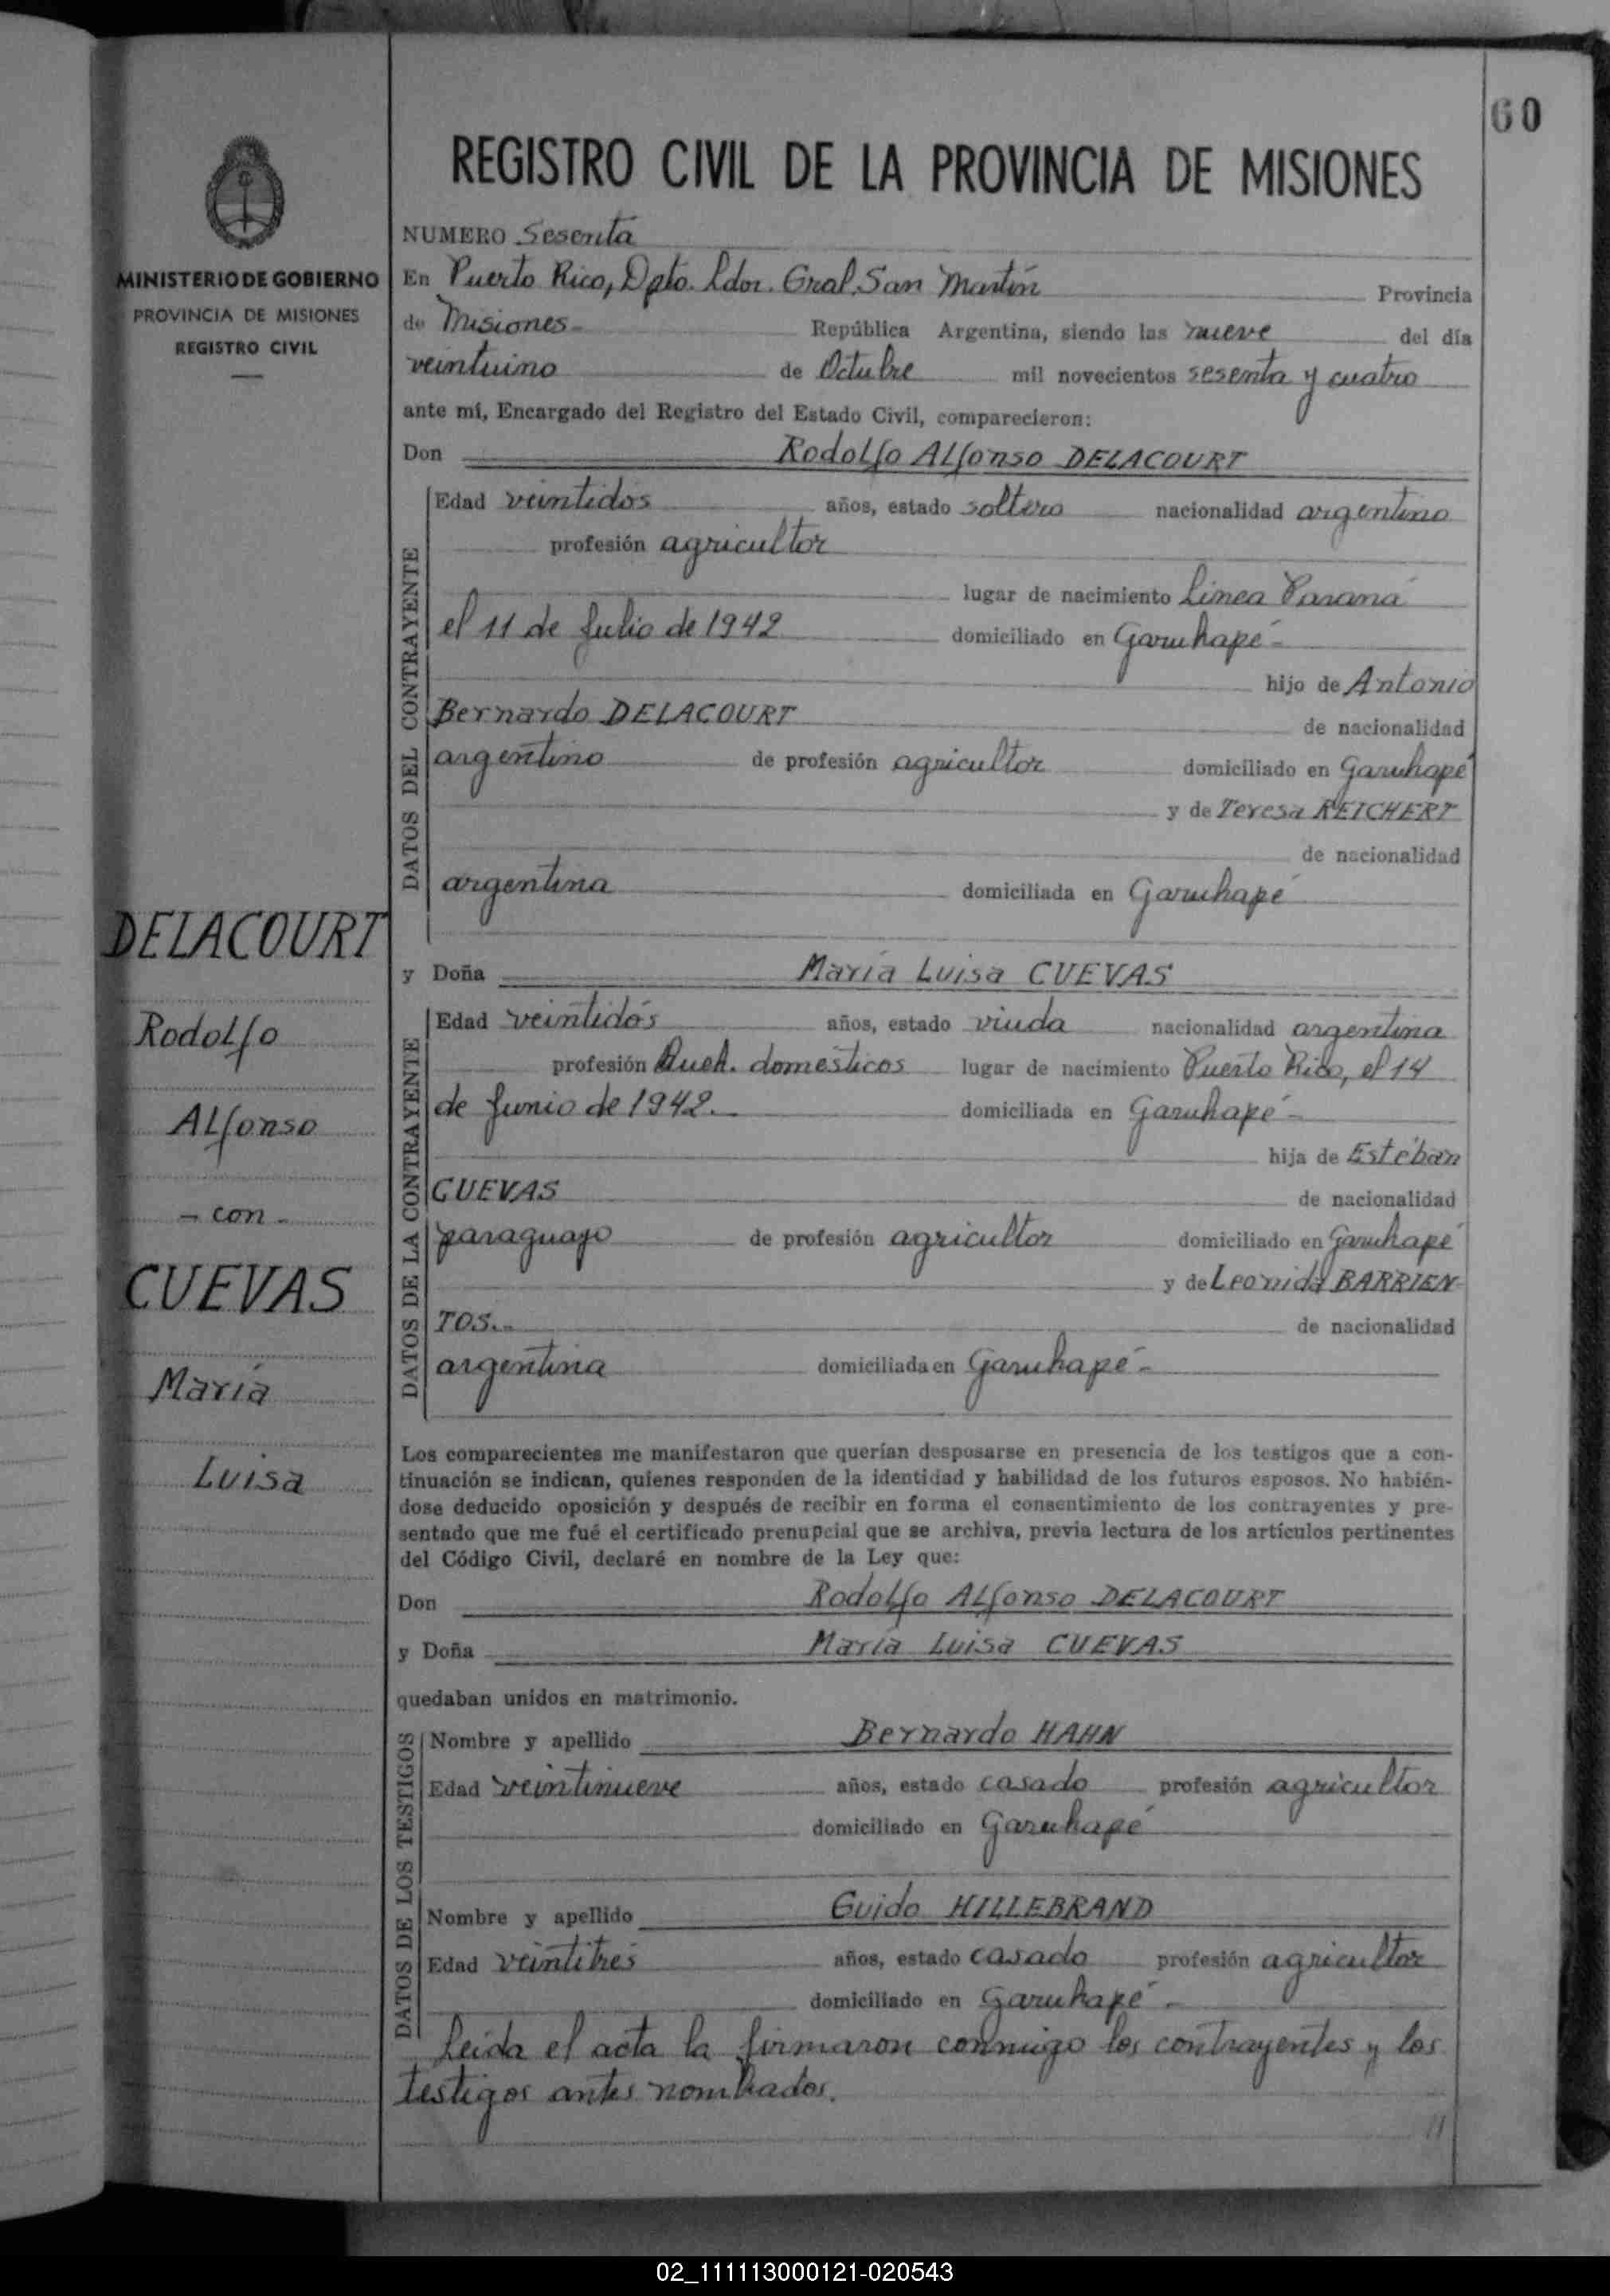 60
REGISTRO CIVIL DE LA PROVINCIA DE MISIONES
MINISTERIO DE GOBIERNO
PROVINCIA DE MISIONES
REGISTRO CIVIL
NUMERO Sesenta
En Puerto Rico, Dpto. Ldor. Gral. San Martín Provincia
de Misiones.- República Argentina, siendo las nueve del día
veintiuino de Octubre mil novecientos sesenta y cuatro
ante mí, Encargado del Registro del Estado Civil, comparecieron:
Don Rodolfo Alfonso DELACOURT
DATOS DEL CONTRAYENTE
Edad veintidos años, estado soltero nacionalidad argentino
profesión agricultor
lugar de nacimiento Linea Paraná
el 11 de Julio de 1942 domiciliado en Garuhapé-
hijo de Antonio
Bernardo DELACOURT de nacionalidad
argentino de profesión agricultor domiciliado en Garuhapé
y de Teresa REICHERT
de nacionalidad
argentina domiciliada en Garuhapé
DELACOURT
Rodolfo
Alfonso
- con -
CUEVAS
María
Luisa
y Doña María Luisa CUEVAS
DATOS DE LA CONTRAYENTE
Edad veintidós años, estado viuda nacionalidad argentina
profesión Queh. domésticos lugar de nacimiento Puerto Rico, el 14
de Junio de 1942.- domiciliada en Garuhapé-
hija de Estéban
CUEVAS de nacionalidad
paraguayo de profesión agricultor domiciliado en Garuhapé
y de Leonida BARRIEN-
TOS.- de nacionalidad
argentina domiciliada en Garuhapé-
Los comparecientes me manifestaron que querían desposarse en presencia de los testigos que a con-
tinuación se indican, quienes responden de la identidad y habilidad de los futuros esposos. No habién-
dose deducido oposición y después de recibir en forma el consentimiento de los contrayentes y pre-
sentado que me fué el certificado prenupcial que se archiva, previa lectura de los artículos pertinentes
del Código Civil, declaré en nombre de la Ley que:
Don Rodolfo Alfonso DELACOURT
y Doña María Luisa CUEVAS
quedaban unidos en matrimonio.
DATOS DE LOS TESTIGOS
Nombre y apellido Bernardo HAHN
Edad veintinueve años, estado casado profesión agricultor
domiciliado en Garuhapé
Nombre y apellido Guido HILLEBRAND
Edad veintitrés años, estado casado profesión agricultor
domiciliado en Garuhapé.-
Leída el acta la firmaron conmigo los contrayentes y los
testigos antes nombrados.
//
02_111113000121-020543